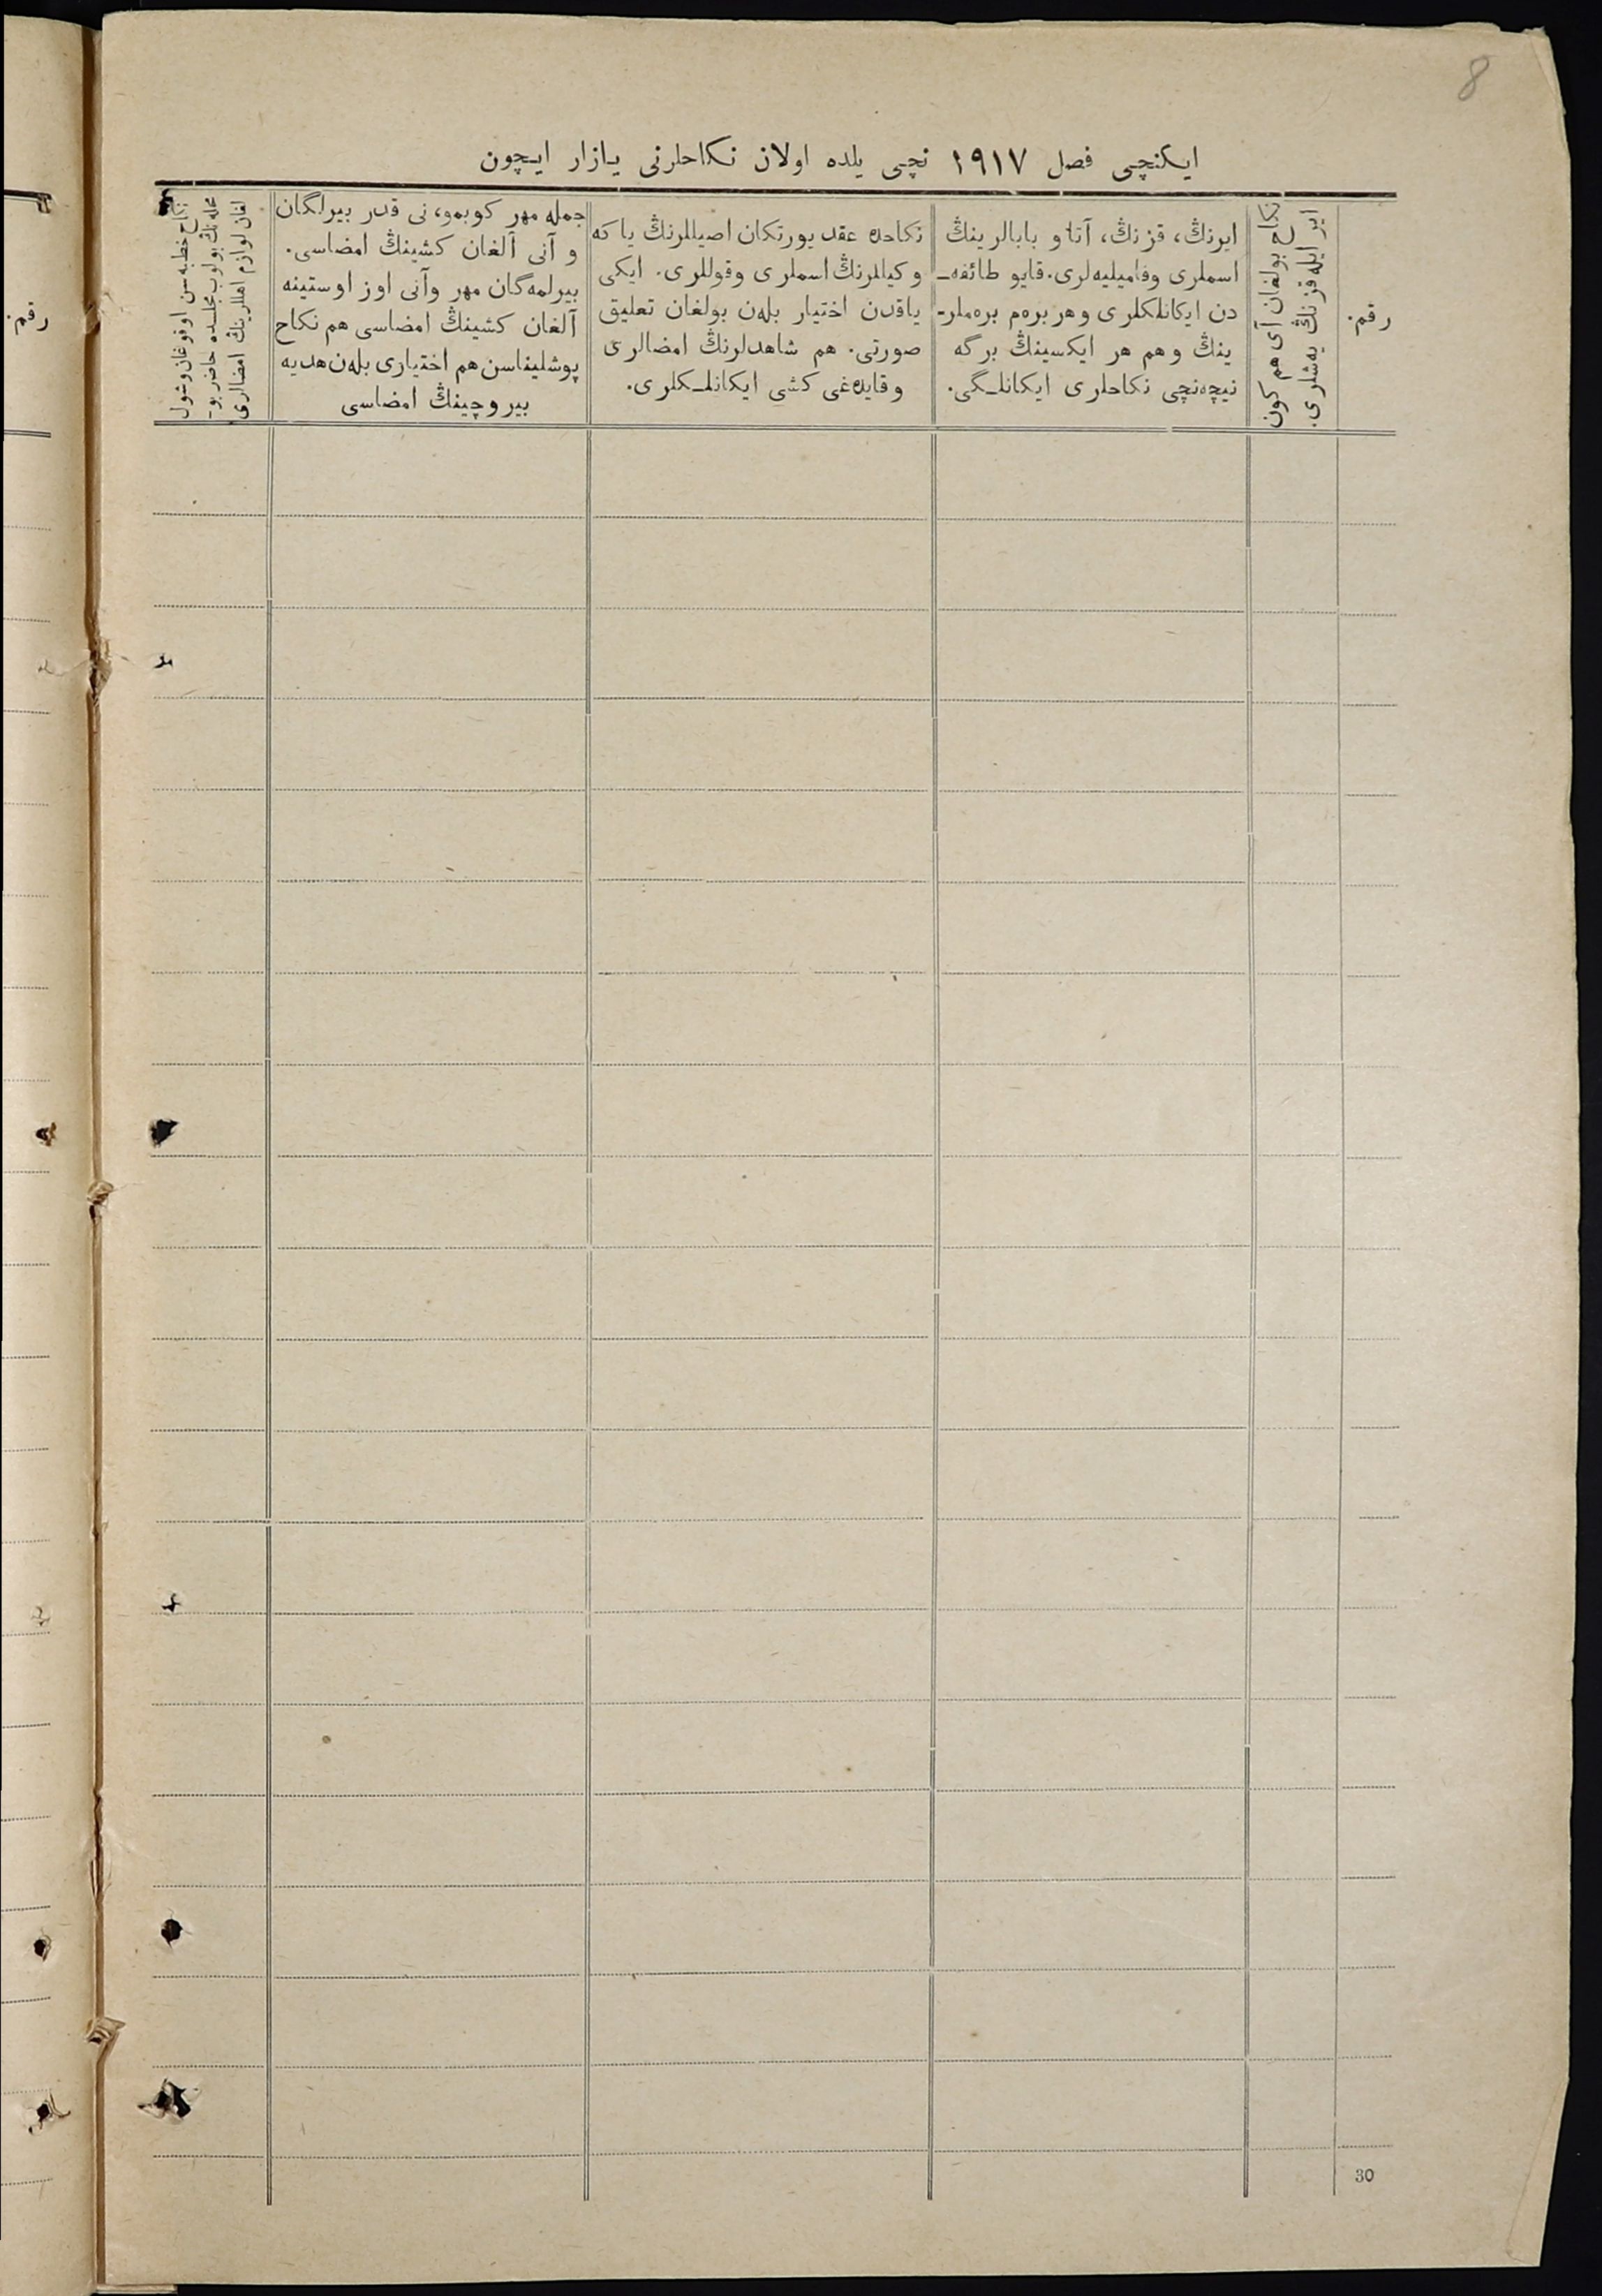 8
ایکنچی فصل ١٩١٧ نچی یلده اولان نکاحلرنی یازار ایچون
رقم.
نکاح بولغان آی هم کون
ایر ایله قزنڭ یه‌شلری.
ایرنڭ، قزنڭ، آتا و بابالرینڭ
اسملری وفامیلیه‌لری. قایو طائفه‌ـ
دن ایکانلکلری وهر بره‌م بره‌ملرـ
ینڭ وهم هر ایکسینڭ برگه
نیچه‌نچی نکاحلری ایکانلـگی.
نکاحده عقد یورتکان اصیللرنڭ یا که
وکیللرنڭ اسملری وقوللری. ایکی
یاقدن اختیار بله‌ن بولغان تعلیق
صورتی. هم شاهدلرنڭ امضالری
وقایده‌غی کشی ایکانلـکلری.
جمله مهر کوبمو، نی قدر بیرلگان
و آنی آلغان کشینڭ امضاسی.
بیرلمه‌گان مهر وآنی اوز اوستینه
آلغان کشینڭ امضاسی هم نکاح
پوشلیناسن هم اختیاری بله‌ن هدیه
بیروچینڭ امضاسی
نکاح خطبه‌سن اوقوغان وشول
محله‌نڭ بولوب مجلسده حاضر بوـ
لغان لوازم اهللرینڭ امضالری
30
رقم.